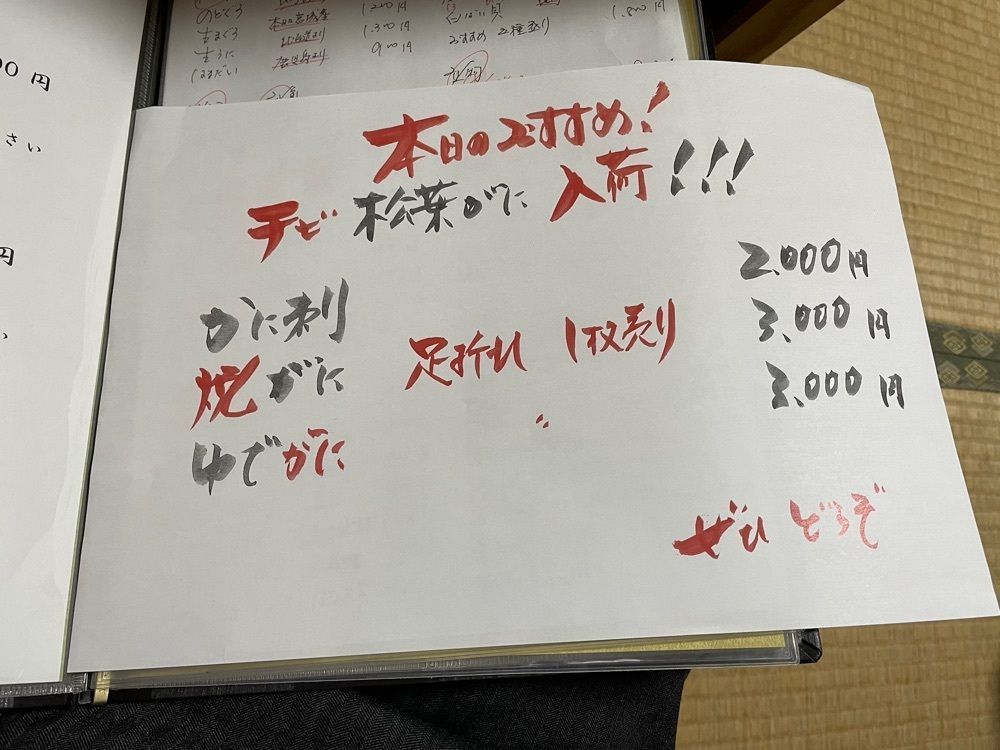 00円
さい
円
のどぐろ 1.200円
生まぐろ 本日宮城産 1.300円
生うに 北海道より 900円
しまだい
おすすめ 2種盛り
1.800円
本日のおすすめ!
チビ松葉がに入荷!!!
かに刺 2.000円
焼がに 足折れ 1枚売り 3.000円
ゆでがに 〃 3.000円
ぜひどうぞ